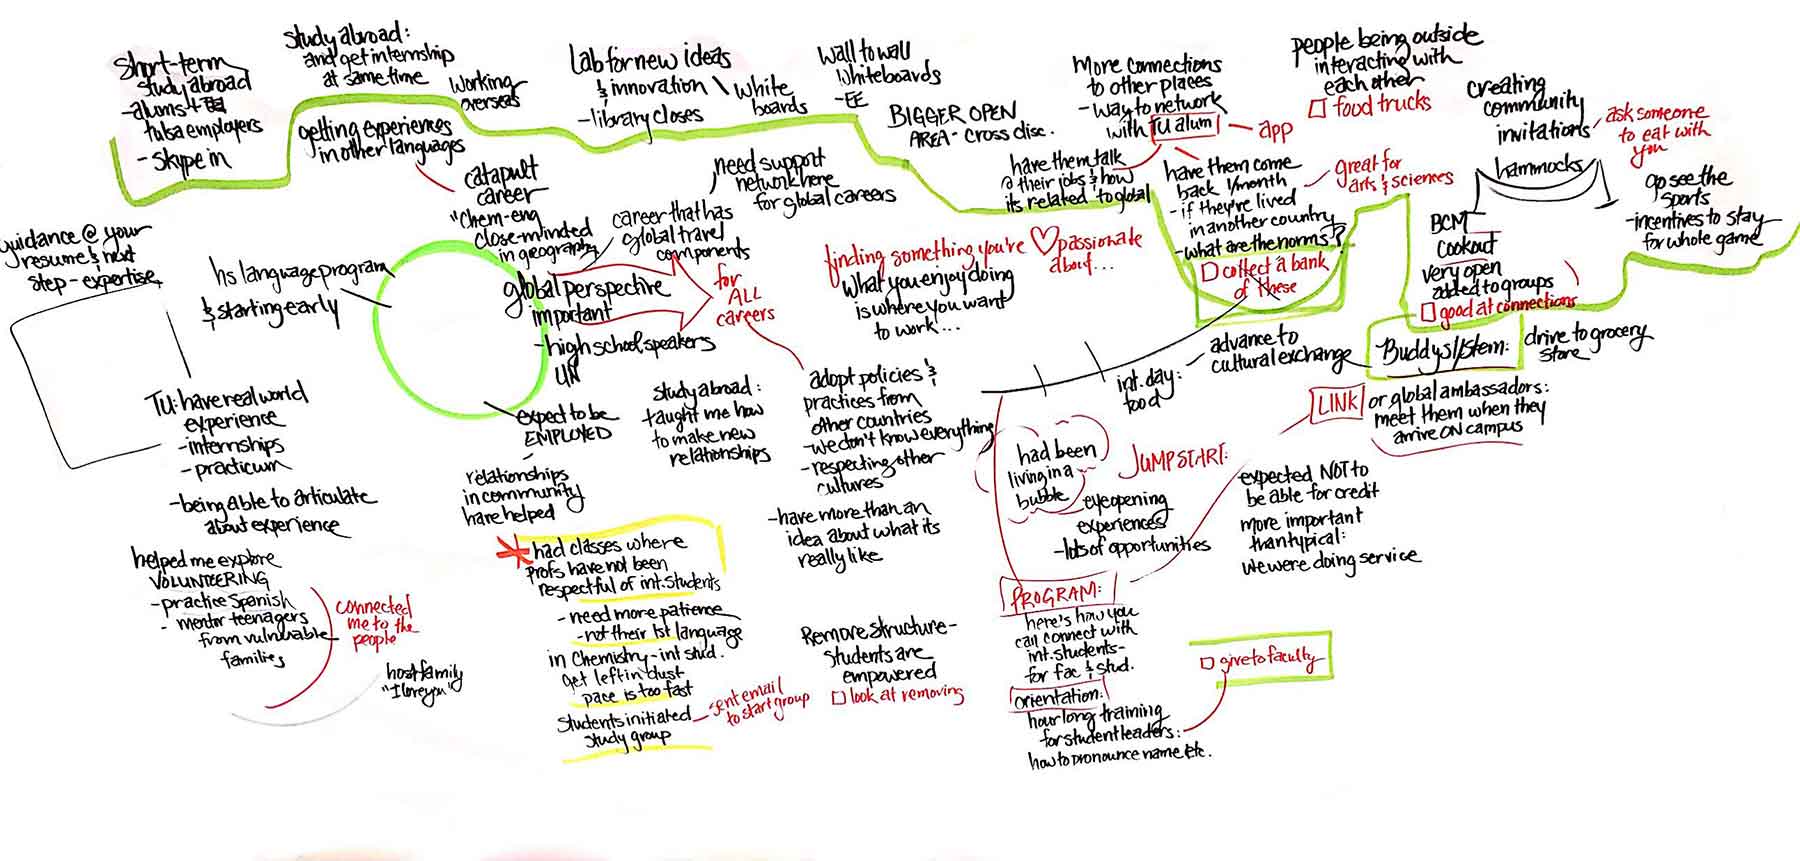 short-term
study abroad
- alums +
tulsa employers
- skype in
study abroad:
and get internship
at same time
working
overseas
getting experiences
in other languages
Lab for new ideas
& innovation
- library closes
white
boards
Wall to wall
whiteboards
- EE
BIGGER OPEN
AREA - cross disc.
More connections
to other places
- way to network
with TU alum
app
people being outside
interacting with
each other
food trucks
creating
community
invitations
ask someone
to eat with
you
hammocks
go see the
sports
- incentives to stay
for whole game
have them talk
@ their jobs & how
its related to global
have them come
back 1/month
- if they're lived
in another country
- what are the norms?
collect a bank
of these
great for
arts & sciences
BCM
Cookout
very open
added to groups
good at connections
catapult
career
"chem-eng
close-minded
in geography
need support
network here
for global careers
career that has
global travel
components
guidance @ your
resume & next
step - expertise
hs language program
& starting early
global perspective
important
- high school speakers
UN
for
ALL
careers
finding something you're passionate
about...
What you enjoy doing
is where you want
to work...
advance to
cultural exchange
int. day:
food
Buddy system:
drive to grocery
store
LINK
or global ambassadors:
meet them when they
arrive ON campus
TU: have real world
experience
- internships
- practicum
- being able to articulate
about experience
expect to be
EMPLOYED
study abroad:
taught me how
to make new
relationships
adopt policies &
practices from
other countries
- we don't know everything
- respecting other
cultures
- have more than an
idea about what its
really like
relationships
in community
have helped
had been
living in a
bubble
JUMPSTART:
eyeopening
experiences
- lots of opportunities
expected NOT to
be able for credit
more important
than typical:
we were doing service
helped me explore
VOLUNTEERING
- practice Spanish
- mentor teenagers
from vulnerable
families
connected
me to the
people
host family
"I love you"
had classes where
profs have not been
respectful of int. students
- need more patience
- not their 1st language
in Chemistry - int stud.
get left in dust
pace is too fast
students initiated
study group
sent email
to start group
Remove structure -
students are
empowered
look at removing
PROGRAM:
here's how you
can connect with
int. students -
for fac & stud.
orientation:
hour long training
for student leaders:
how to pronounce name etc.
give to faculty